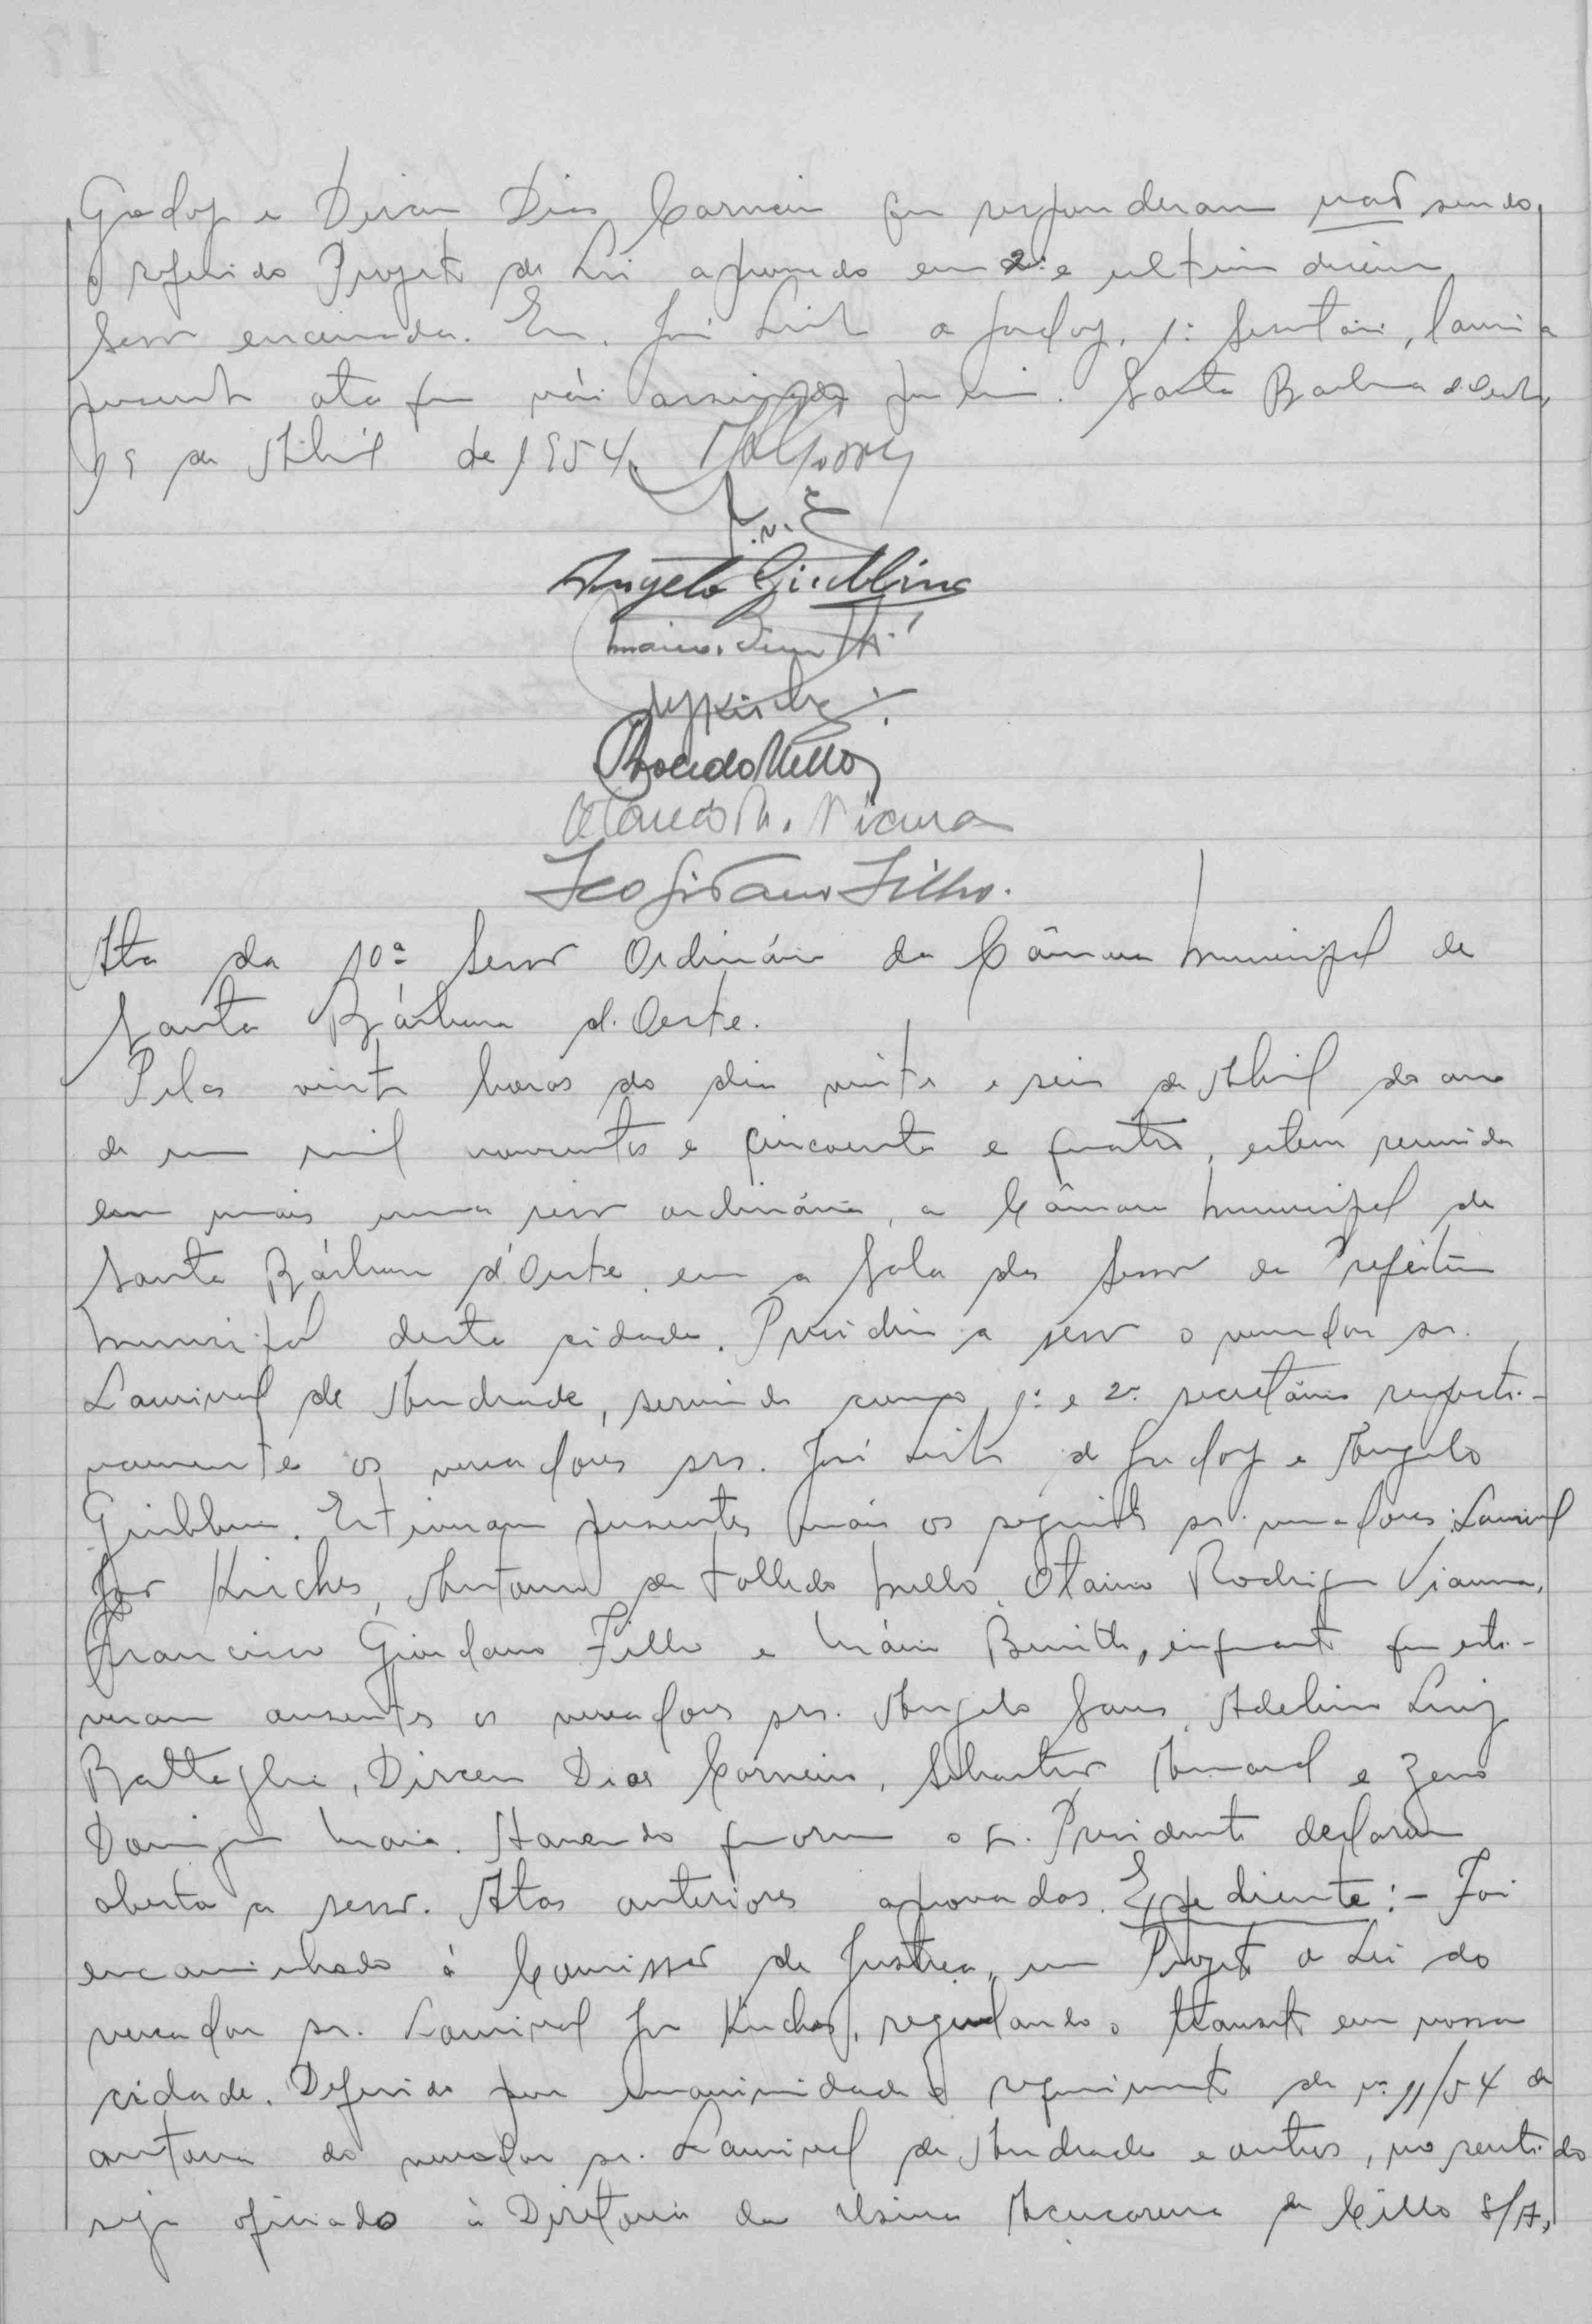 Godoy e Dirceu Dias Carneiro que responderam não sendo
o referido Projeto de Lei aprovado em 2ª e ultima discussão
Sessão encerrada. Eu, José Leite de Godoy, 1º Secretário, lavrei a
presente ata que vai assinada por mim. Santa Barbara d'Oeste,
19 de Abril de 1954.
Angelo Giubbina
Mario
Tolledo Mello
Otavio R. Viana
Fco Giordano Filho.
Ata da 10ª Sessão Ordinária da Câmara Municipal de
Santa Bárbara d'Oeste.
Pelas vinte horas do dia vinte e seis de Abril do ano
de um mil novecentos e cincoenta e quatro, esteve reunida
em mais uma sessão ordinária, a Câmara Municipal de
Santa Bárbara d'Oeste, em a Sala das Sessões da Prefeitura
Municipal desta cidade. Presidiu a sessão o vereador sr.
Laurival de Andrade, servindo como 1º e 2º secretários respecti-
vamente os vereadores srs. José Leite de Godoy e Angelo
Giubbina. Estiveram presentes mais os seguintes srs. vereadores: Laurival
Kirches, Antonio de Tolledo Mello, Otavio Rodrigues Vianna,
Francisco Giordano Filho e Mário Benitti, enquanto que esti-
veram ausentes os vereadores srs. Angelo Sans, Adelino Luiz
Battaglia, Dirceu Dias Carneiro, Sebastião Amaral e Zeno
Domingues Maia. Havendo quorum o sr. Presidente declarou
aberta a sessão. Atas anteriores aprovadas. Expediente:- Foi
encaminhado á Comissão de Justiça, um Projeto de Lei do
vereador sr. Laurival Kirches, regulando o transito em nossa
cidade. Deferido por unanimidade o requerimento de nº 11/54 de
autoria do vereador sr. Laurival de Andrade e outros, no sentido
seja oficiado à Diretoria da Usina Açucareira de Cillo S/A,